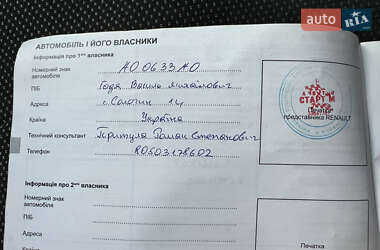 AUTO RIA
АВТОМОБІЛЬ І ЙОГО ВЛАСНИКИ
Інформація про 1го власника
Номерний знак автомобіля АО 0633 АО
ПІБ Года Михайлович
Адреса с.
Країна Україна
Технічний консультант Притула Роман Степанович
Телефон
СТАРТ М
Печатка
представника RENAULT
Інформація про 2го власника
Номерний знак
автомобіля
ПІБ
Адреса
Країна
Печатка